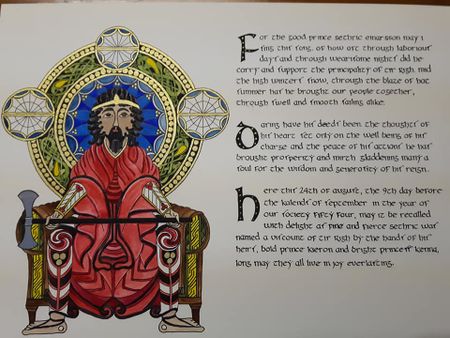 For the good prince sethric einarsson may i
sing this song, of how oft through laboriouf
days and through wearisome nights did he
carry and support the principality of tir righ, mid
the high winters snow, through the blaze of hot
summer hat he brought our people together,
through swell and smooth sailing alike.
Daring have his deeds been, the thoughts of
his heart set only on the well being of his
charge and the peace of his actions he has
brought prosperity and mirth, gladdening many a
soul for the wisdom and generosity of his reign.
here this 24th of august, the 9th day before
the kalends of september in the year of
our society fifty four, may it be recalled
with delight as fine and fierce sethric was
named a viscount of tir righ by the hands of his
heirs, bold prince kieron and bright princess kenna,
long may they all live in joy everlasting.